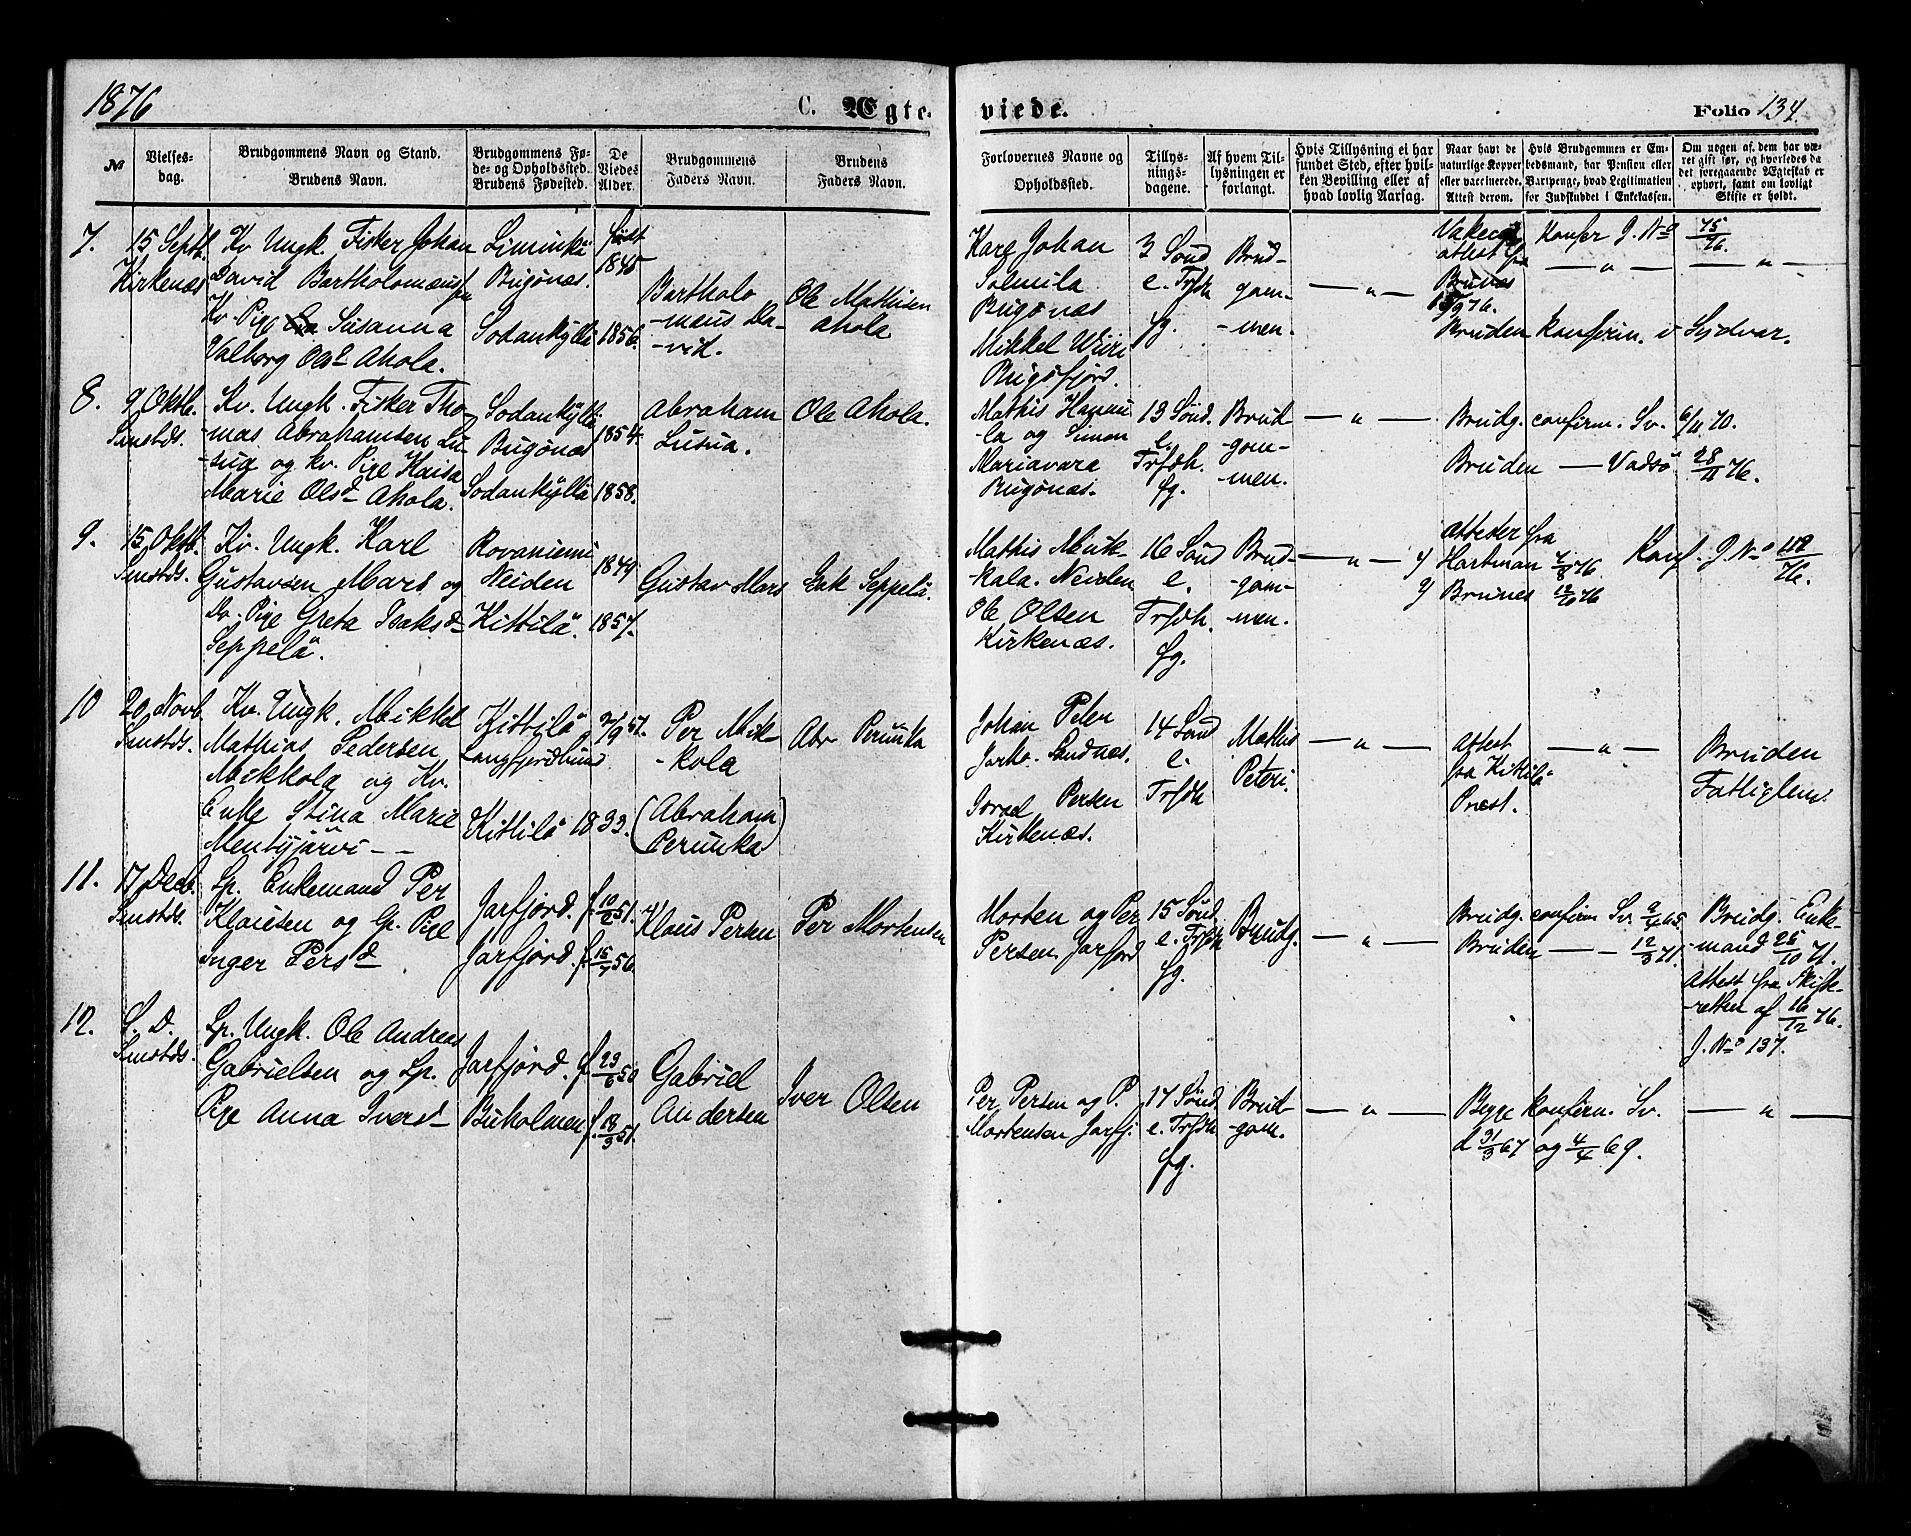 1876
C. Ægte-
viede.
Folio 134.
№
Vielses-
dag.
Brudgommens Navn og Stand.
Brudens Navn.
Brudgommens Fø-
de- og Opholdssted.
Brudens Fødested.
De
Viedes
Alder.
Brudgommens
Faders Navn.
Brudens
Faders Navn.
Forlovernes Navne og
Opholdssted.
Tillys-
nings-
dagene.
Af hvem Til-
lysningen er
forlangt.
Hvis Tillysning ei har
fundet Sted, efter hvil-
ken Bevilling eller af
hvad lovlig Aarsag.
Naar havt de
naturlige Kopper
eller vaccinerede.
Attest derom.
Hvis Brudgommen er Em-
bedsmand, har Pension eller
Vartpenge, hvad Legitimation
for Indskuddet i Enkekassen.
Om nogen af dem har væ-
ret gift før, og hvorledes da
det foregaaende Ægteskab er
ophørt, samt om lovligt
Skifte er holdt.
7.
15 Septb.
Kirkenæs
Kv. Ungk. Fisker Johan
David Bartholomæus
Kv. Pige Susanna
Valborg Olsd Ahola.
Liminka
Bugønæs.
Sodankylä
født
1845
1856.
Bartholo
-mæus Da-
-vid.
Ole Mathisen
Ahola
Karl Johan
Salmila
Bugønæs
Mikkel Wiiri
Bugøfjord.
3 Sønd
e. Trfdh
fg.
Brud-
gom-
-men.
— " —
attest fra
Brunæs
/9 76.
Bruden konfirm. i Sydvar.
Konfer J. No 75/76.
— " —
— " —
8.
9 Oktb.
Smstds.
Kv. Ungk. Fisker Tho-
-mas Abrahamsen Lu-
-sua og kv. Pige Kaisa
Marie Olsd Ahola.
Sodankylä
Bugønæs
Sodankylä
1854.
1858.
Abraham
Lusua.
Ole Ahola.
Mathis Hannu-
-la og Simon
Mariavara
Bugønæs.
13 Sønd.
e.
Trfdh.
fg.
Brud-
-gom-
-men.
— " —
Brudg. confirm. Sv. 6/11 70.
Bruden — Vadsö 28/11 76.
9.
15 Oktb.
Smstds.
Kv. Ungk. Karl
Gustavsen Mars og
Do. Pige Greta Isaksd
Seppelä.
Rovaniemi
Neiden
Kittilä.
1849
1857.
Gustav Mars
Isak Seppelä.
Mathis Menik-
kala. Neiden
Ole Olsen
Kirkenæs.
16 Sønd
e.
Trfdh.
fg.
Brud-
-gom-
-men.
— " —
Attester fra
Hartman 7/8 76
Brunæs 12/10 76
Konf. J. No 112/76.
10
20 Novb.
Smstds.
Kv. Ungk. Mikkel
Mathias Pedersen
Mikkola og Kv.
Enke Stina Marie
Mentyjärvi — —
Kittilä
Langfjordbund
Kittilä
2/9 51.
1833.
Per Mik-
-kola
(Abraham
Perunka)
Abr Perunka
Johan Peter
Jarko. Sandnæs.
Israel Persen
Kirkenæs.
14 Sønd
e.
Trfdh
Mathis
Peteri.
— " —
Attest
fra Kittilä
Præst.
— " —
Bruden
Fattiglem.
11.
17 Decb.
Smstds.
Lp. Enkemand Per
Klausen og Lp. Pige
Inger Persd
Jarfjord.
Jarfjord.
f. 10/2 51.
f. 15/7 56.
Klaus Persen
Per Mortensen
Morten og Per
Persen Jarfjord
15 Sønd.
e. Trfdh
fg.
Brudg.
— " —
Brudg. confirm Sv. 2/4 65.
Bruden — — 12/3 71.
Brudg. Enke-
-mand 25/10 71.
Attest fra Skifte-
-retten af 16/12 76.
J. No 137.
12.
S. D.
Smstds.
Lp. Ungk. Ole Andreas
Gabrielsen og Lp.
Pige Anna Iversd
Jarfjord.
Buholmen
f. 23/6 50
f. 18/3 51.
Gabriel
Andersen
Iver Olsen
Per Persen og P.
Mortensen Jarfj.
17 Sønd.
e. Trfdh
fg.
Brud-
gom.
— " —
Begge konfirm. Sv.
d 31/3 67 og 4/4 69.
— " —